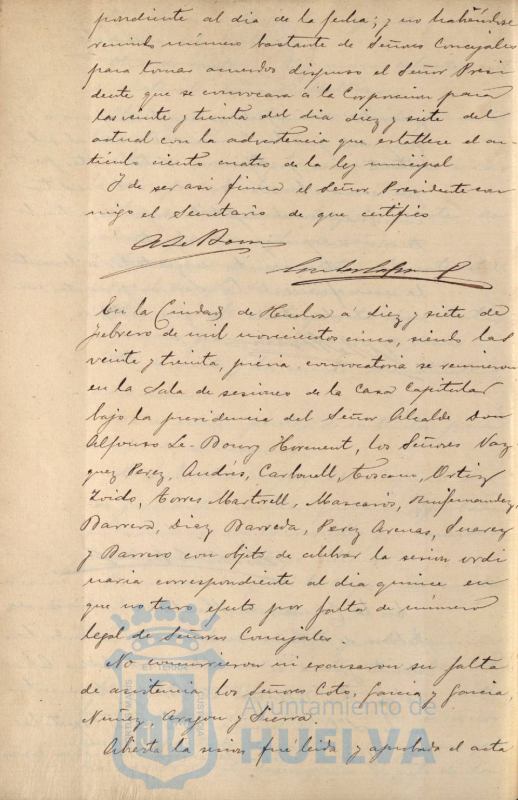 pondiente al dia de la fecha; y no habiéndose
reunido número bastante de Señores Concejales
para tomar acuerdos dispuso el Señor Presi
dente que se convocara á la Corporacion para
las veinte y treinta del dia diez y siete del
actual con la advertencia que establece el ar-
tículo ciento cuatro de la ley municipal
Y de ser asi firma el Señor Presidente con
migo el Secretario de que certifico
En la Ciudad de Huelva á diez y siete de
Febrero de mil novecientos cinco, siendo las
veinte y treinta, prévia convocatoria se reunieron
en la Sala de sesiones de la Casa Capitular
bajo la presidencia del Señor Alcalde Don
Alfonso Le-Bourg Horment, los Señores Vaz
quez Perez, Andrés, Carbonell, Toscano, Ortiz
Zoido, Torres Martorell, Mascarós,
Barrera, Diaz Barreda, Perez Arenas, Suarez
y Barrero con objeto de celebrar la sesion ordi
naria correspondiente al dia quince en
que no tuvo efecto por falta de número
legal de Señores Concejales.
No concurrieron ni excusaron su falta
de asistencia los Señores Coto, Garcia y Garcia,
Nuñez, Aragon y Sierra.
Abierta la sesion fué leida y aprobada el acta
Ayuntamiento de
HUELVA